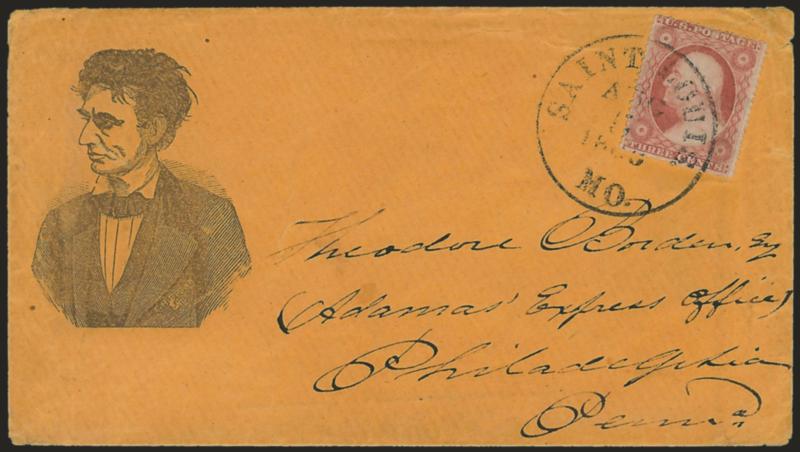 SAINT LOUIS
MO.
U.S. POSTAGE
THREE CENTS
Theodore Borden, Esq
(Adamas' Express Office)
Philadelphia
Penna.